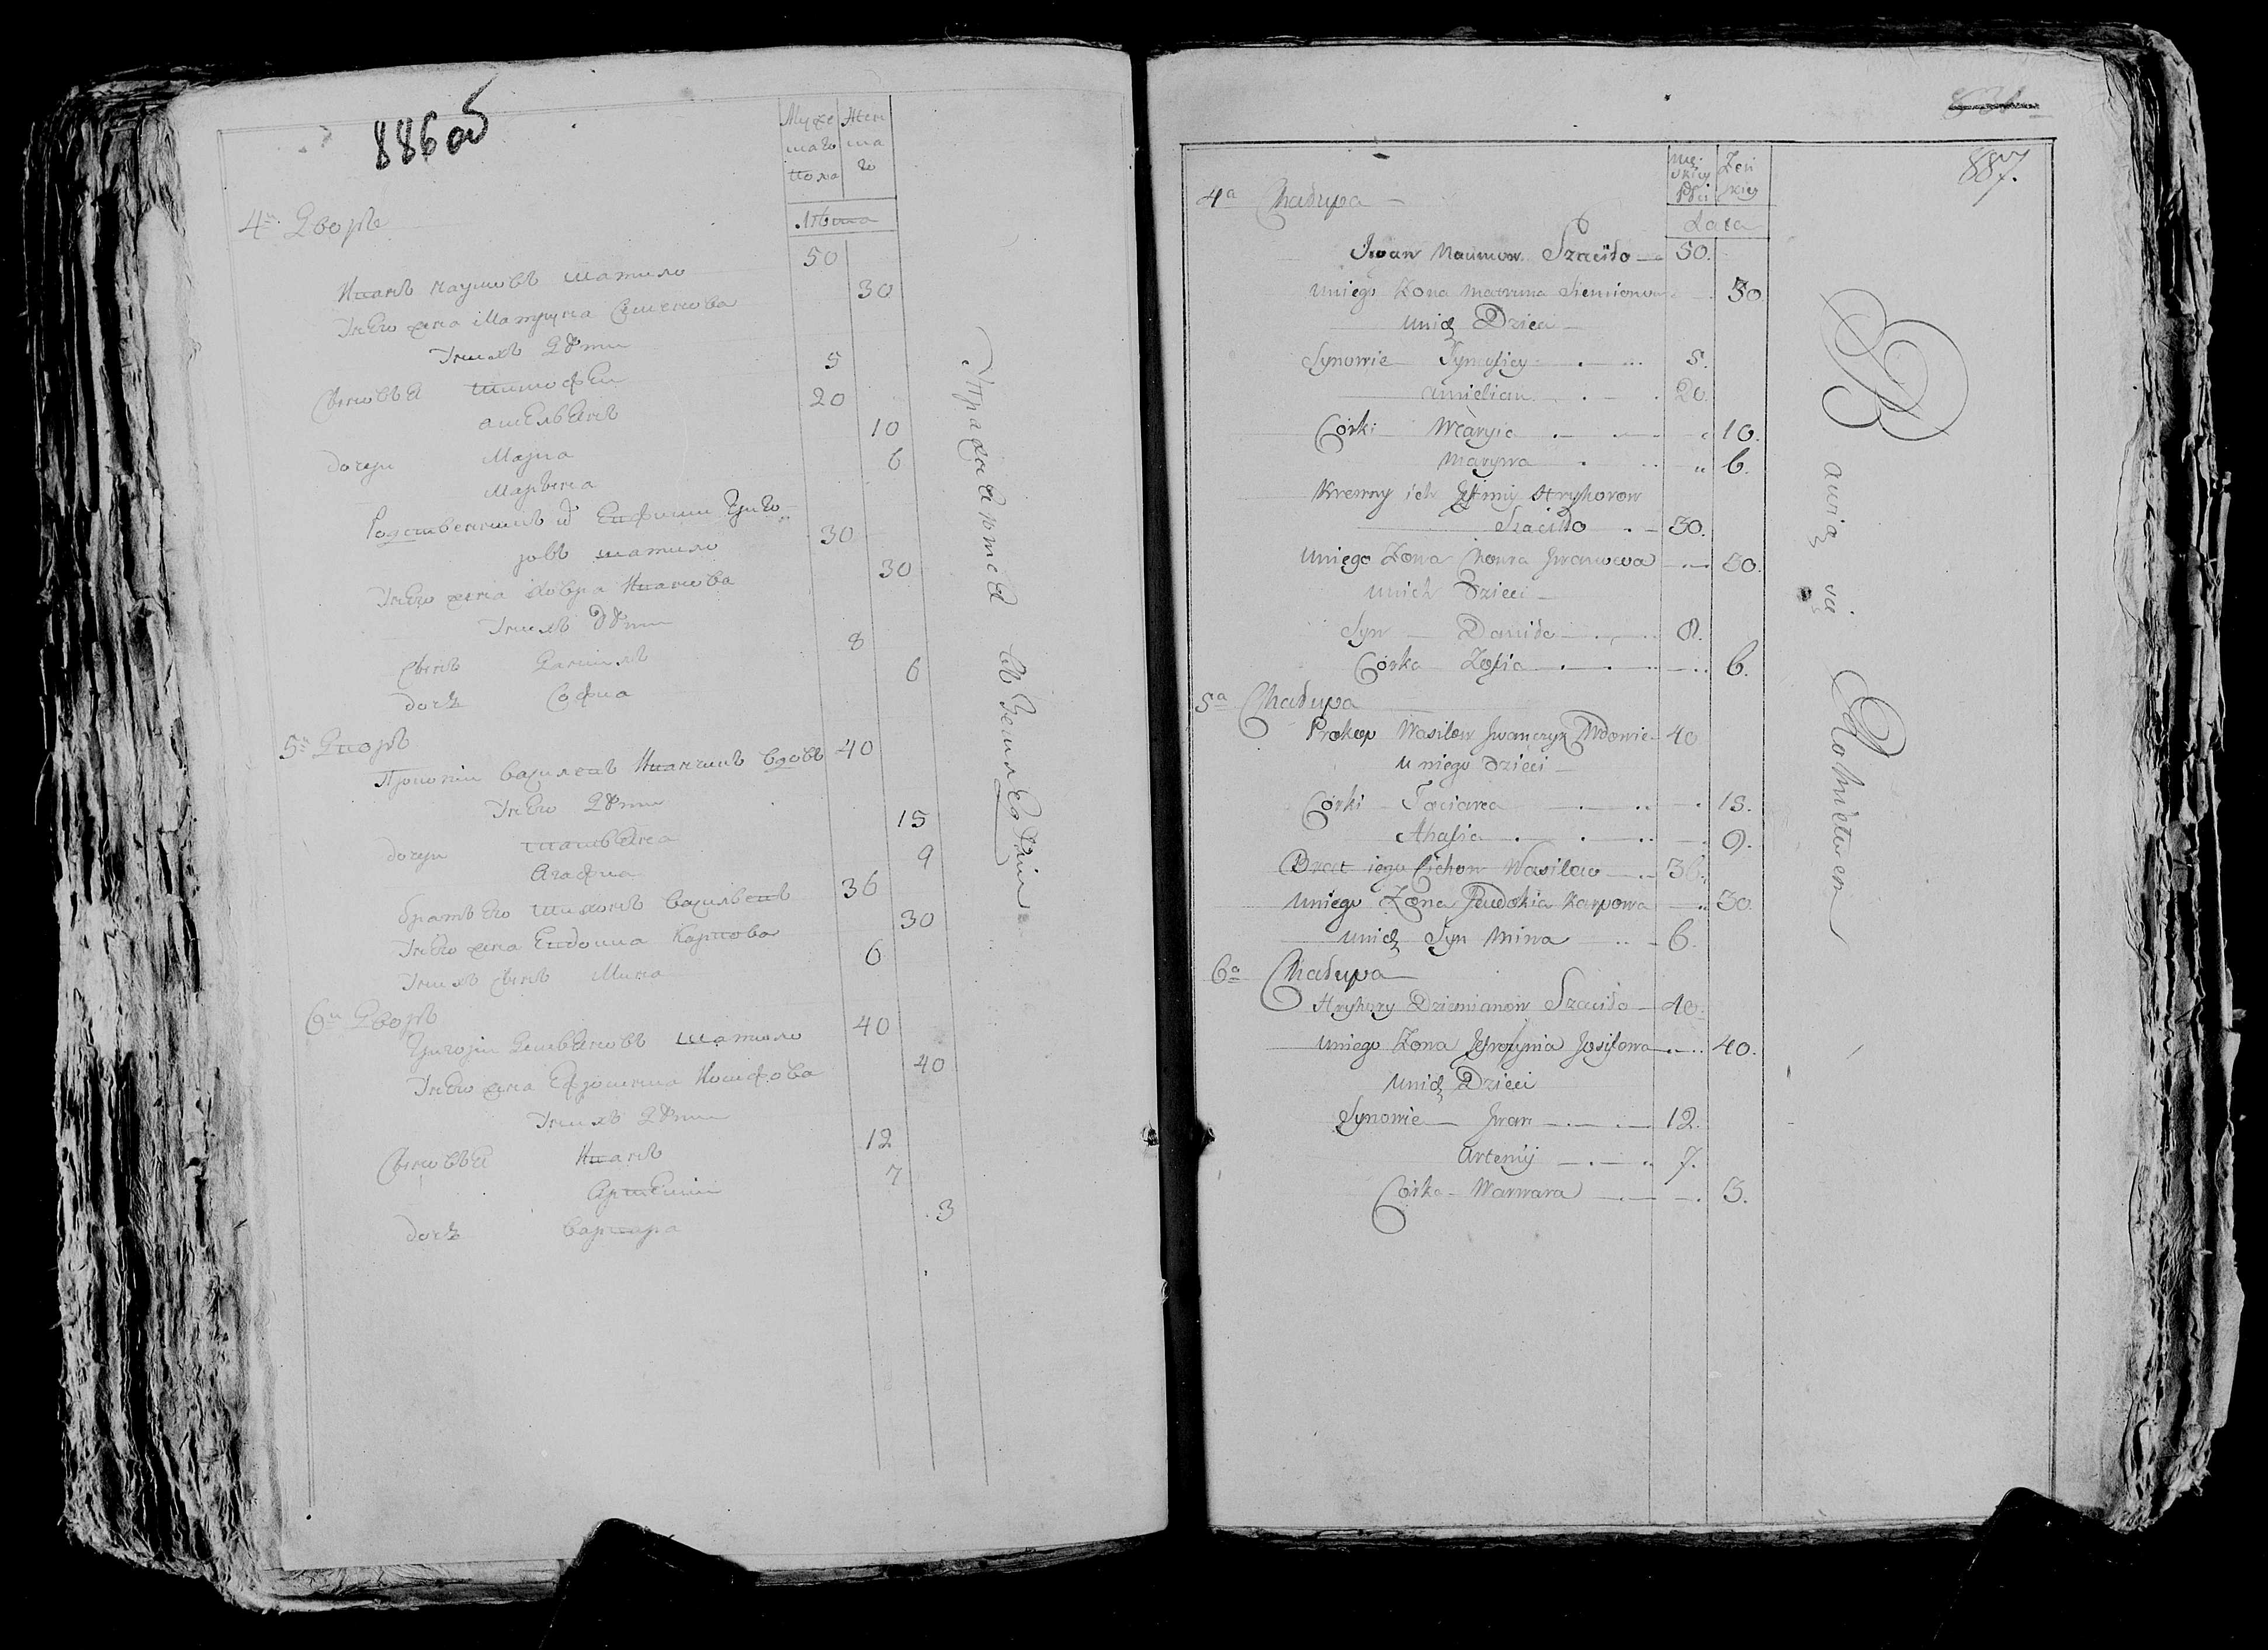 886 об
Муже
скаго
пола
Жен
ска
го
Лѣта
4й Дворъ
Иванъ Наумовъ Шатило 50
У него жена Матруна Семенова 30
У нихъ Дѣти
Сыновья Тимофей 5
Амельянъ 20
дочери Марья 10
Марьвна 6
Родственникъ их Ефимъ Григо-
ровъ Шатило 30
У него жена Ховра Иванова 30
У нихъ Дѣти
Сынъ Данила 8
дочь Софиа 6
5й Дворъ
Прокопій Васильевъ Иванчикъ вдовъ 40
У него Дѣти
дочери Татьяна 15
Агафиа 9
братъ его Тихонъ Васильевъ 36
У него жена Евдокиа Карпова 30
У нихъ сынъ Мина 6
6й Дворъ
Григорій Демьяновъ Шатило 40
У него жена Ефросинья Иосифова 40
У нихъ Дѣти
Сыновья Иванъ 12
Артемій 7
дочь Варвара 3
Упражняются въ Земледѣліи
887.
Męz
skiey
Płci
Żeń
skiey
Lata
4a Chałupa
Jwan Naumow Szaciło 50.
u niego Żona Matruna Siemionowa 30
u nich Dzieci
Synowie Tymofiey 5.
Amielian 20.
Córki Maryia 10.
Maryna 6.
Krewny ich Jefimiy Hryhorow
Szaciłło 30.
u niego Żona Chowra Jwanowa 30.
u nich Dzieci
Syn Daniło 8.
Córka Zofia 6.
5a Chałupa
Prokop Wasilew Jwanczyk Wdowiec 40
u niego Dzieci
Córki Taciana 15.
Ahafia 9.
Brat iego Cichon Wasilew 36.
u niego Żona Jeudokia Karpowa 30.
u nich Syn Mina 6.
6a Chałupa
Hryhory Dziemianow Szaciło 40.
u niego Żona Jefrozynia Josifowa 40.
u nich Dzieci
Synowie Jwan 12.
Artemij 7.
Córka Warwara 3.
Bawią się Rolnictwem